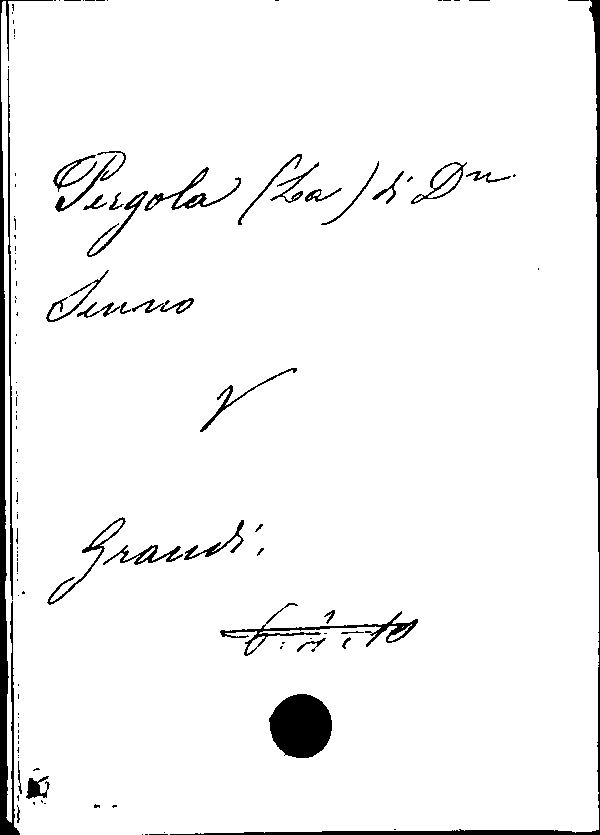 Pergola (La) di Dn.
Senno
V
Grandi.